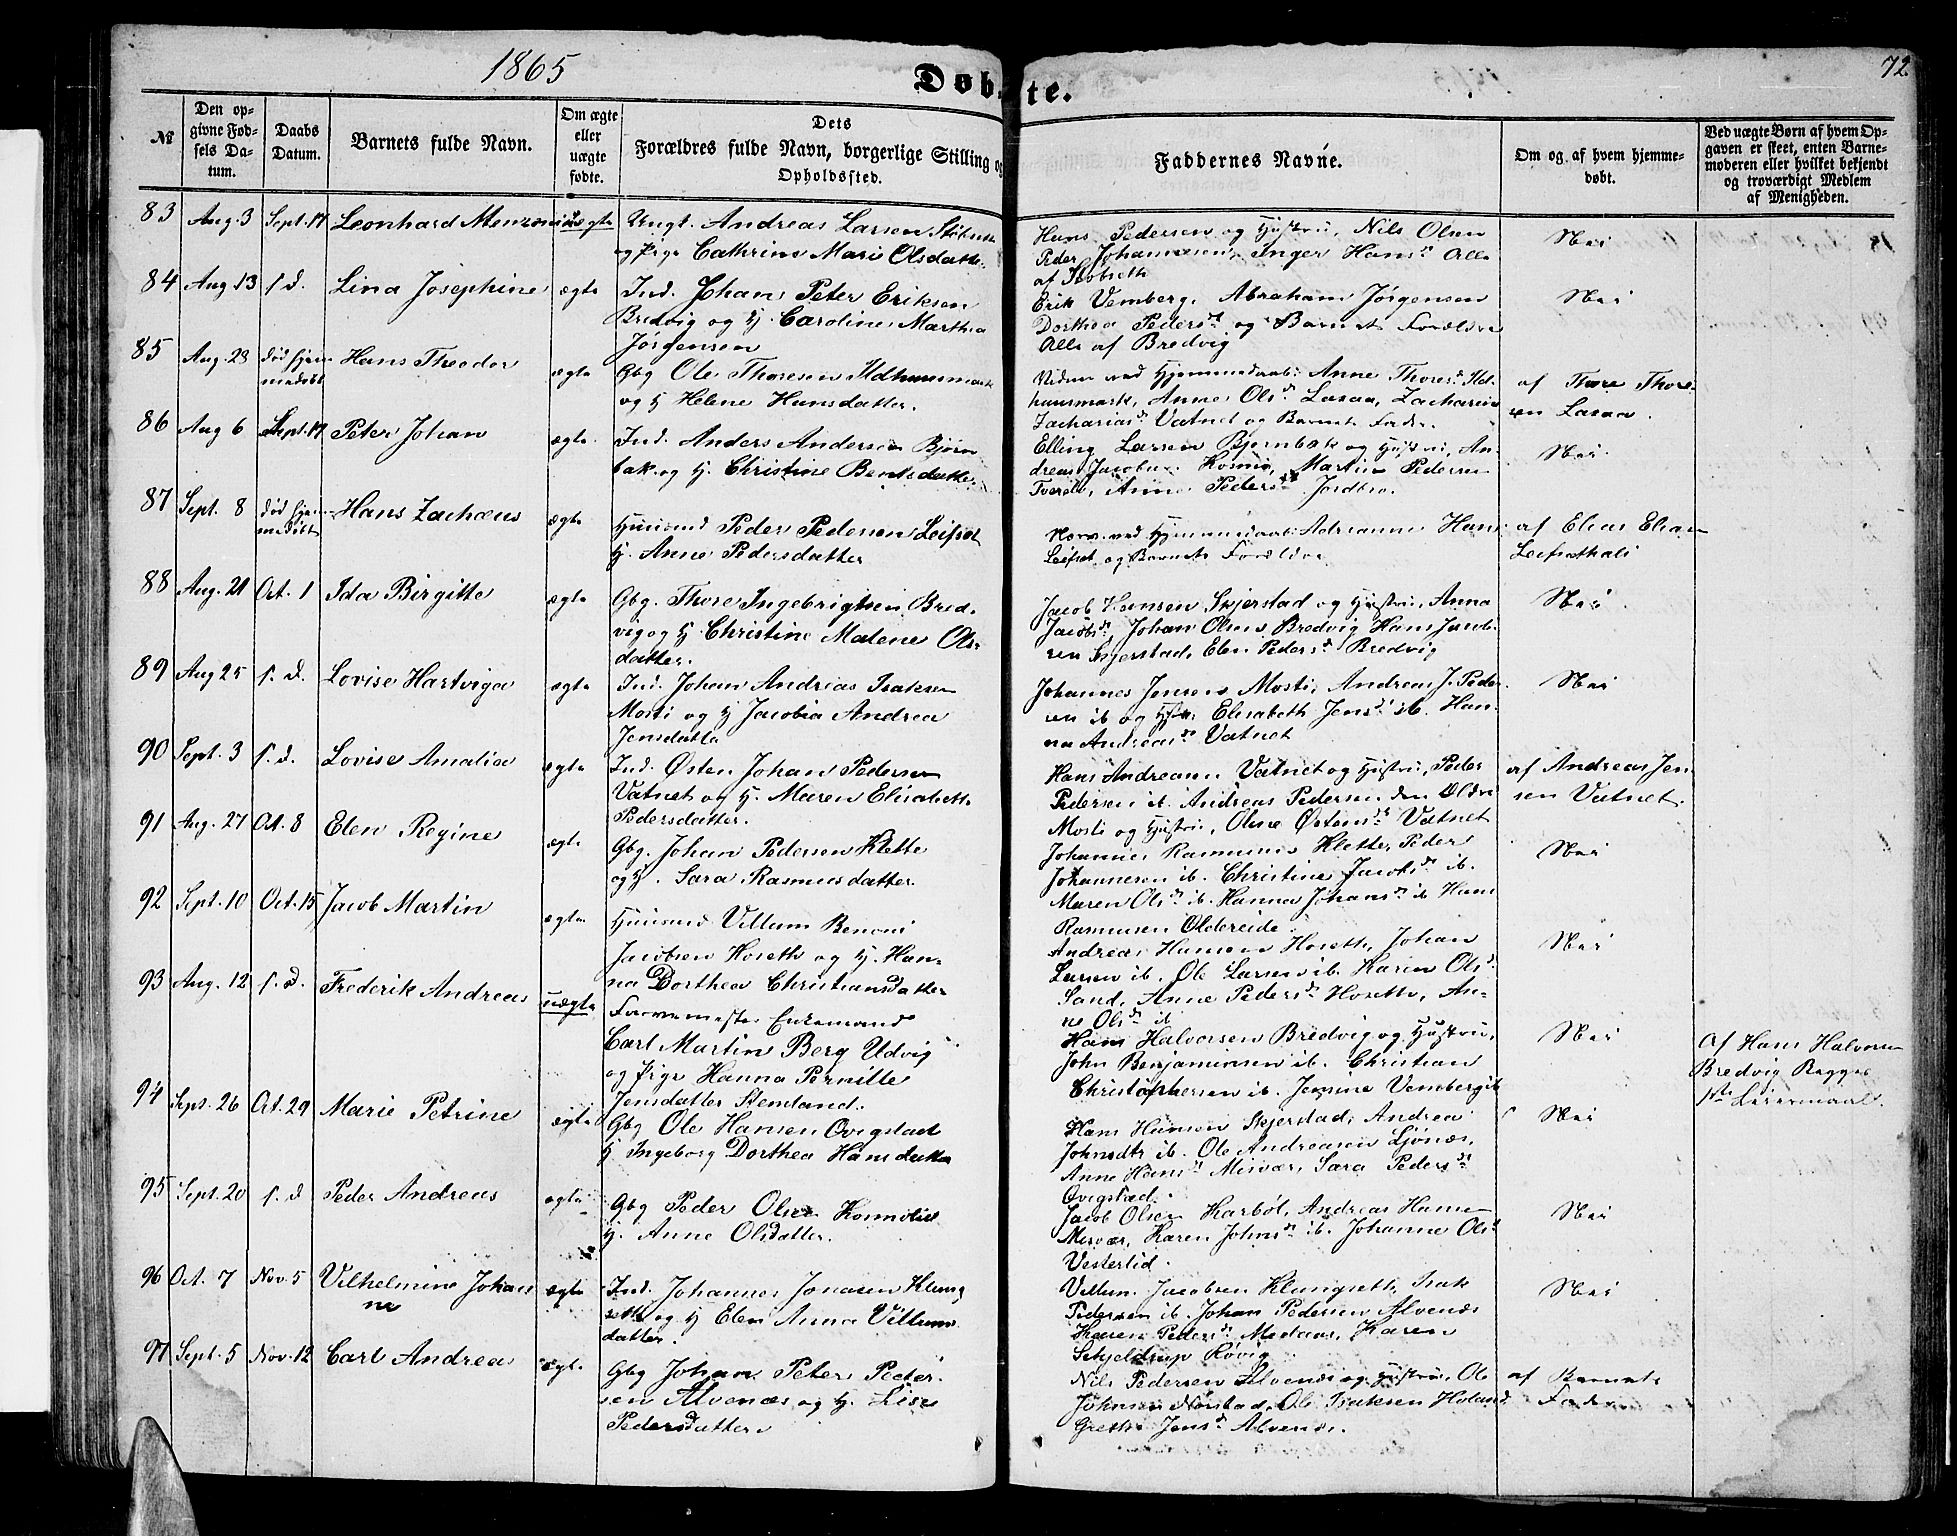 1865
Døbte.
72
№
Den opgivne Fødsels Datum.
Daabs Datum.
Barnets fulde Navn.
Om ægte eller uægte fødte.
Dets Forældres fulde Navn, borgerlige Stilling og Opholdssted.
Faddernes Navne.
Om og af hvem hjemmedøbt.
Ved uægte Børn af hvem Opgaven er skeet, enten Barnemoderen eller hvilket bekjendt og troværdigt Medlem af Menigheden.
83 Aug. 3 Sept. 17 Leonhard uægte Ungt. Andreas Larsen
og Pige Cathrine Marie Olsdatter.
Hans Pedersen og Hustru, Nils Olsen
Peder Johannesen, Inger Hansd. Alle
af
Nei
84 Aug 13 s. d. Lina Josephine ægte Ind. Johan Peter Eriksen
Bredvig og H. Caroline Marthea
Jørgensen
Erik Vemberg, Abraham Jørgensen
Dorthea Pedersd. og Barnets Forældre
Alle af Bredvig
Nei
85 Aug. 28 død hjemmedøbt Hans Theodor ægte Gbg Ole Thoresen Ildhuusmark
og H Helene Hansdatter.
Vidner ved Hjemmedaab: Anne Thoresd. Ild-
huusmark, Anne Olsd. Laxaa, Zacharias
Zachariasd. Vatnet og Barnets Fader.
af Thore Thore-
sen Laxaa.
86 Aug 6 Sept. 17 Peter Johan ægte. Ind. Anders Andersen Bjørn-
bak og H. Christine Bentsdatter.
Elling Larsen Bjørnbak og Hustru, An-
dreas Jacobsen Kosmo, Martin Pedersen
Tverelv, Anne Pedersd. Jordbro.
Nei
87 Sept. 8 død hjemmedøbt Hans Zachæus ægte Huusmd Peder Pedersen Leifset
H. Anne Pedersdatter
ved Hjemmedaab: Adrianne Hans
Leifset og Barnets Forældre
af Elias Elias
88 Aug. 21 Oct. 1 Ida Birgitte ægte Gbg. Thore Ingebrigtsen Bred-
vig og H Christine Malene Ols-
datter.
Jacob Hansen Skjerstad og Hustru, Anna
Jacobsd. Johan Olsen Bredvig Hans Jacob-
sen Skjerstad, Elen Pedersd. Bredvig
Nei
89 Aug 25 s. d. Lovise Hartviga ægte Ind. Johan Andreas Isaksen
Mosti og H Jacobia Andrea
Jensdatter
Johannes Jensen Mosti, Andreas J. Peder-
sen ib og Hstr. Elisabeth Jensd. ib. Han-
na Andreasd. Vatnet
Nei
90 Sept. 3 s. d. Lovise Amalia ægte Ind. Østen Johan Pedersen
Vatnet og H. Maren Elisabeth
Pedersdatter.
Hans Andreasen Vatnet og Hustru, Peder
Pedersen ib. Andreas Pedersen den Ældre
Mosti og Hustru, Oline Østensd. Vatnet
af Andreas Jen-
sen Vatnet.
91 Aug. 27 Oct. 8 Elen Regine ægte Gbg. Johan Pedersen Klette
og H. Sara Rasmusdatter.
Johannes Rasmussen Klette, Peder
Johannesen ib. Christine Jacobsd. ib.
Maren Olsd. ib. Hanna Johansd. ib Hans
Rasmussen Oldereide
Nei
92 Sept. 10 Oct. 15 Jacob Martin ægte Huusmd Villum Benoni
Jacobsen Hoseth og H. Han-
na Dorthea Christiansdatter
Andreas Hansen Hoseth, Johan
Larsen ib. Ole Larsen ib. Karen Olsd.
Sand, Anne Pedersd. Hoseth, An-
ne Olsd. ib
Nei
93 Aug. 12 s. d. Frederik Andreas uægte Enkemand
Carl Martin Berg Udvig
og Pige Hanna Pernille
Jensdatter Stemland.
Hans Halvorsen Bredvig og Hustru,
John Benjaminsen ib. Christian
Christophersen ib. Jensine Vembergib
Nei
Af Hans Halvorsen
Bredvig Begges
1ste Leiermaal.
94 Sept. 26 Oct. 29 Marie Petrine ægte Gbg Ole Hansen Øvigstad
H. Ingeborg Dorthea Hansdatter
Hans Hansen Skjerstad, Andrea
Johnsdtr ib. Ole Andreasen Ljønæs,
Anne Hansd. Misvær, Sara Pedersd.
Øvigstad.
Nei
95 Sept. 20 s. d Peder Andreas ægte Gbg Peder Olsen
H. Anne Olsdatter.
Jacob Olsen Karbøl, Andreas Hansen
Misvær, Karen Johnsd. ib. Johanne Olsd
Vesterlid.
Nei
96 Oct. 7 Nov. 5 Vilhelmine Johan
ne
ægte Ind. Johannes Jonasen Klung-
seth og H Elen Anna Villums-
datter.
Villum Jacobsen Klungseth, Isak
Pedersen ib. Johan Pedersen Alvenæs
Karen Pedersd. Medaas, Karen
Schjeldrup Røvig
Nei
97 Sept. 5 Nov. 12 Carl Andrea ægte Gbg Johan Peter Peder-
sen Alvenæs og H. Lise
Pedersdatter.
Nils Pedersen Alvenæs og Hustru, Ole
Johnsen Ole Isaksen Holand
Grethe Jensd. Alvenæs.
af Barnets
Fader